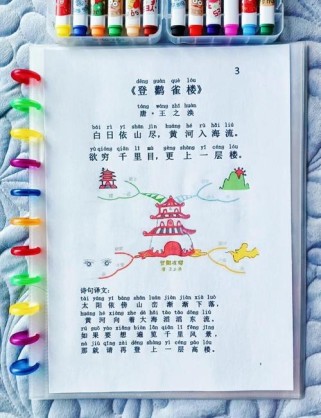 3
dēng guàn què lóu
《登鹳雀楼》
táng wáng zhī huàn
唐·王之涣
bái rì yī shān jìn huáng hé rù hǎi liú
白日依山尽，黄河入海流。
yù qióng qiān lǐ mù gèng shàng yī céng lóu
欲穷千里目，更上一层楼。
登鹳雀楼
诗句译文：
tài yáng yī bàng shān luán jiàn jiàn xià luò
太阳依傍山峦渐渐下落，
huáng hé xiàng zhe dà hǎi tāo tāo dōng liú
黄河向着大海滔滔东流。
rú guǒ yào xiǎng biàn lǎn qiān lǐ fēng jǐng
如果要想遍览千里风景，
nà jiù qǐng zài dēng shàng yī céng gāo lóu
那就请再登上一层高楼。